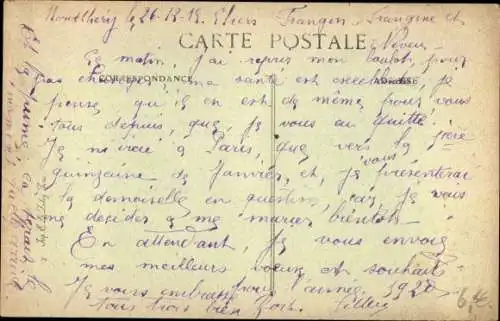 Montlhéry le 26-12-19. Chers Frangin, Frangine et
Neveu
CARTE POSTALE
CORRESPONDANCE
ADRESSE
Ce matin, j'ai repris mon boulot, pour
pas changer, ma santé est excellente, je
pense qu'il en est de même pour vous
tous depuis, que, je vous ai quitté.
Je m'irai à Paris, que vers la 1ère
quinzaine de Janvier, et, je vous présenterai
la demoiselle en question, car, je vais
me décider à me marier bientôt.
En attendant, je vous envoie
mes meilleurs vœux et souhaits
pour l'année 1920
Je vous embrasse
tous trois bien fort.
6,4